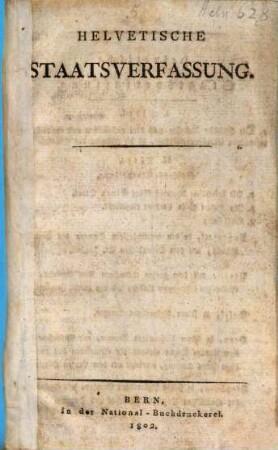 Helv 628
HELVETISCHE
STAATSVERFASSUNG.
BERN,
In der National-Buchdruckerei.
1802.